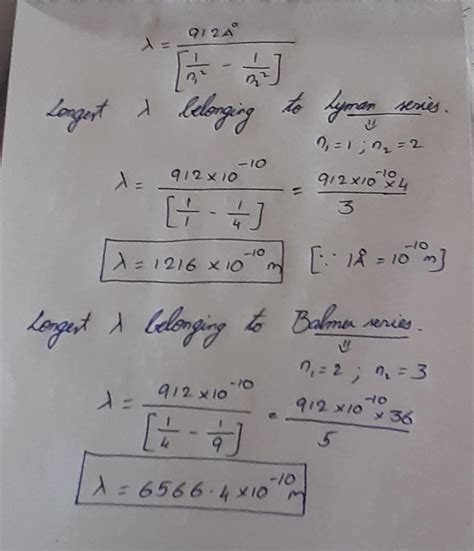 λ = 912A° / [1/n² - 1/n²]
Longest λ belonging to Lyman series.
⇓
n₁=1 ; n₂=2
λ = 912×10⁻¹⁰ / [1/1 - 1/4] = 912×10⁻¹⁰×4 / 3
λ = 1216 ×10⁻¹⁰ m [∵ 1Å = 10⁻¹⁰ m]
Longest λ belonging to Balmer series.
⇓
n₁=2 ; n₂ = 3
λ = 912×10⁻¹⁰ / [1/4 - 1/9] = 912×10⁻¹⁰×36 / 5
λ = 6566.4×10⁻¹⁰ m